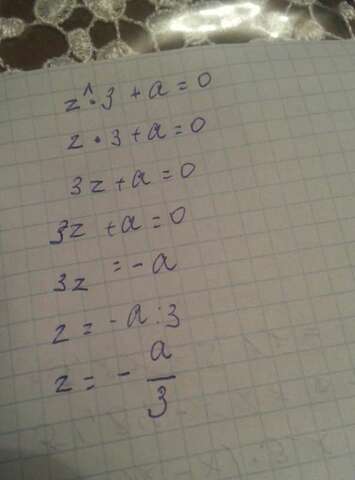 z^·3+a=0
z·3+a=0
3z+a=0
3z+a=0
3z=-a
z=-a:3
z=-a/3